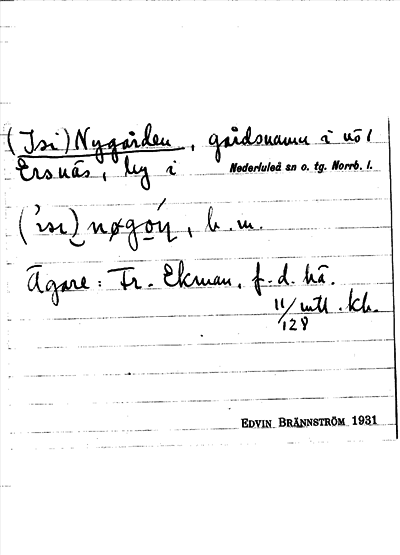 (Isi) Nygården, gårdsnamn i nö/
Ersnäs, by i Nederluleå sn o. tg. Norrb. l.
('ısı) nøgo̲ń, b. m.
Ägare: Fr. Ekman, f. d. hä.
11/128 mtl. kb.
EDVIN BRÄNNSTRÖM 1931